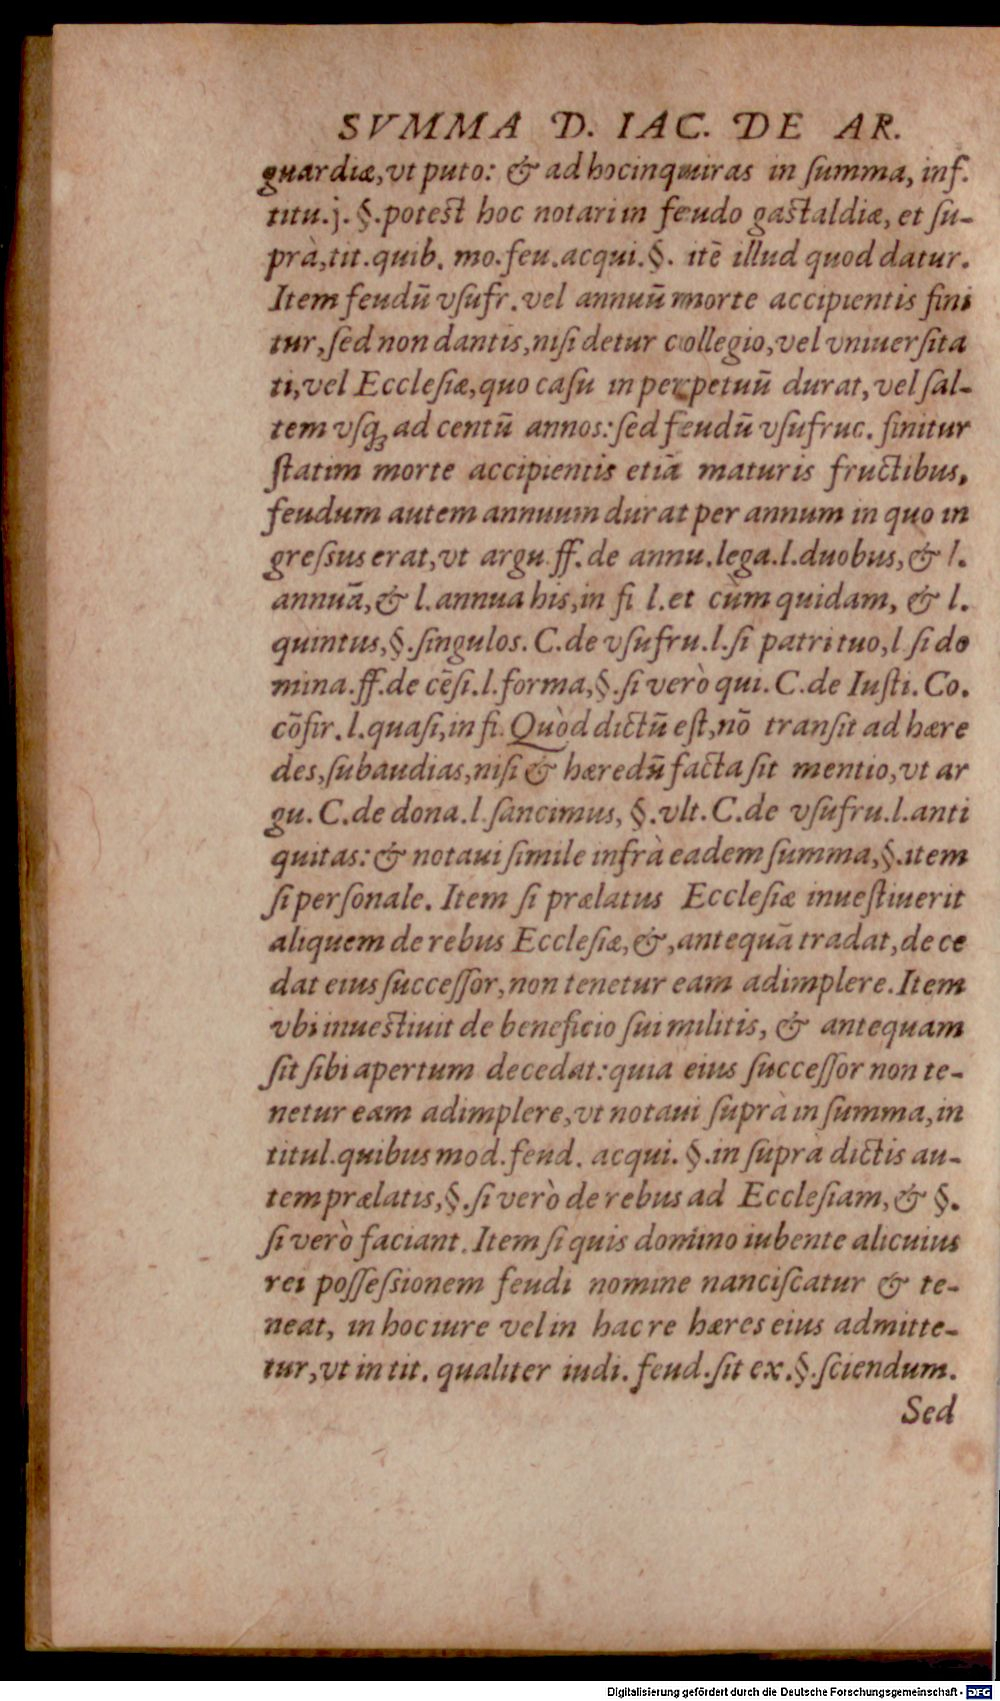 SVMMA D. IAC. DE AR.
guardiæ,vt puto: & ad hocinquiras in ſumma, inf.
titu.j. §.potest hoc notari in feudo gastaldiæ, et ſu-
prà,tit.quib. mo.feu.acqui.§. itē illud quod datur.
Item feudū vſufr.vel annuū morte accipientis fini
tur,ſed non dantis,niſi detur collegio,vel vniuerſita
ti,vel Eccleſiæ,quo caſu in perpetuū durat,vel ſal-
tem vſq; ad centū annos: ſed feudū vſufruc. finitur
ſtatim morte accipientis etiā maturis fructibus,
feudum autem annuum durat per annum in quo in
greſsus erat,vt argu ff.de annu.lega.l.duobus,& l.
annuā,& l.annua his,in fi l.et cùm quidam, & l.
quintus,§.ſingulos. C.de vſufru.l.ſi patri tuo,l ſi do
mina.ff.de cēſi.l.forma,§.ſi verò qui.C.de Iuſti.Co.
cōfir.l.quaſi,in fi. Quòd dictū eſt,nō tranſit ad hære
des,ſubaudias,niſi & hæredū facta ſit mentio,vt ar
gu. C.de dona.l.ſancimus, §.vlt.C.de vſufru.l.anti
quitas: & notaui ſimile infrà eadem ſumma,§.item
ſi perſonale. Item ſi prælatus Eccleſiæ inueſtiuerit
aliquem de rebus Eccleſiæ,&,antequā tradat,de ce
dat eius ſucceſſor,non tenetur eam adimplere.Item
vbi inuestiuit de beneficio ſui militis, & antequam
ſit ſibi apertum decedat:quia eius ſucceſſor non te-
netur eam adimplere,vt notaui ſuprà in ſumma,in
titul.quibus mod.feud. acqui. §.in ſuprà dictis au-
tem prælatis,§.ſi verò de rebus ad Eccleſiam,& §.
ſi verò faciant. Item ſi quis domino iubente alicuius
rei poſſeſsionem feudi nomine nanciſcatur & te-
neat, in hoc iure vel in hac re hæres eius admitte-
tur,vt in tit. qualiter iudi. feud.ſit ex.§.ſciendum.
Sed
Digitalisierung gefördert durch die Deutsche Forschungsgemeinschaft - DFG